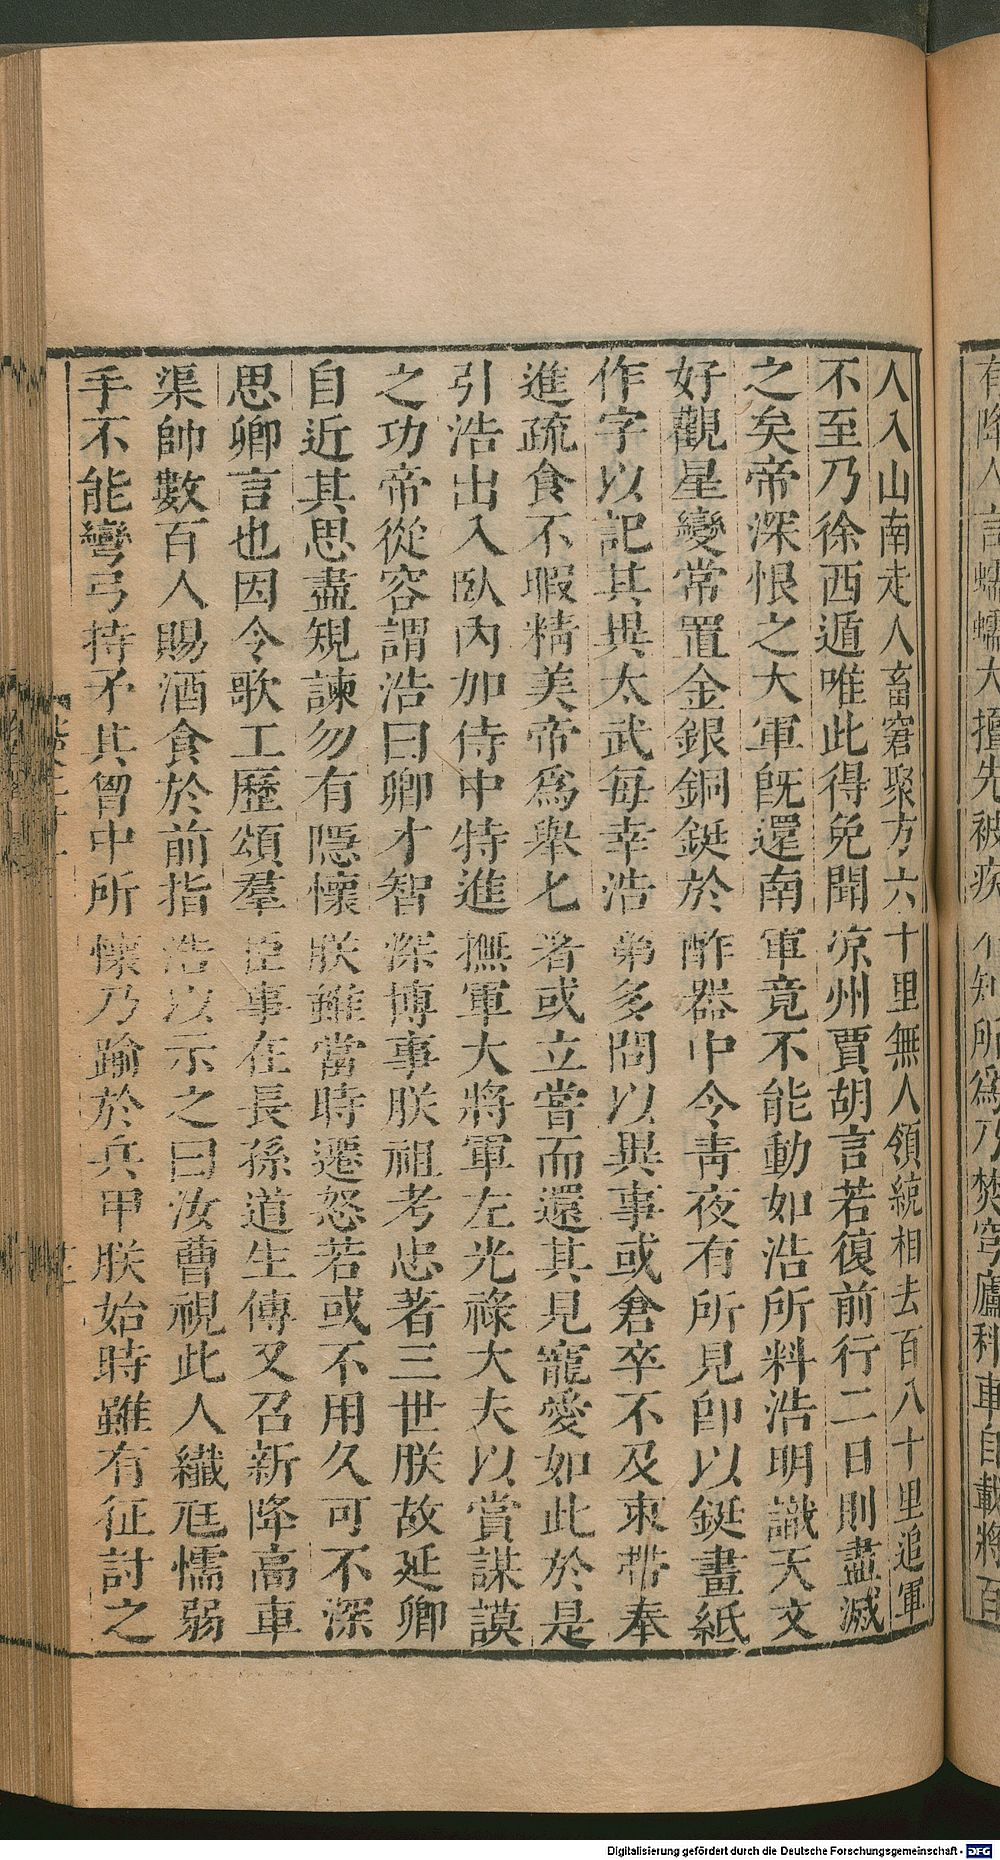 人入山南走人畜窘聚方六十里無人領統相去百八十里追軍
不至乃徐西遁唯此得免聞涼州賈胡言若復前行二日則盡滅
之矣帝深恨之大軍既還南軍竟不能動如浩所料浩明識天文
好觀星變常置金銀銅鋌於酢器中令青夜有所見即以鋌畫紙
作字以記其異太武每幸浩第多問以異事或倉卒不及束帶奉
進疏食不暇精美帝爲舉匕者或立嘗而還其見寵愛如此於是
引浩出入臥內加侍中特進撫軍大將軍左光祿大夫以賞謀謨
之功帝從容謂浩曰卿才智深博事朕祖考忠著三世朕故延卿
自近其思盡規諫勿有隱懷朕雖當時遷怒若或不用久可不深
思卿言也因令歌工歷頌羣臣事在長孫道生傳又召新降高車
渠帥數百人賜酒食於前指浩以示之曰汝曹視此人纖尫懦弱
手不能彎弓持矛其胷中所懷乃踰於兵甲朕始時雖有征討之
有降人言蠕蠕大擅先被疾不知所爲乃焚穹廬科車自載將百
Digitalisierung gefördert durch die Deutsche Forschungsgemeinschaft - DFG